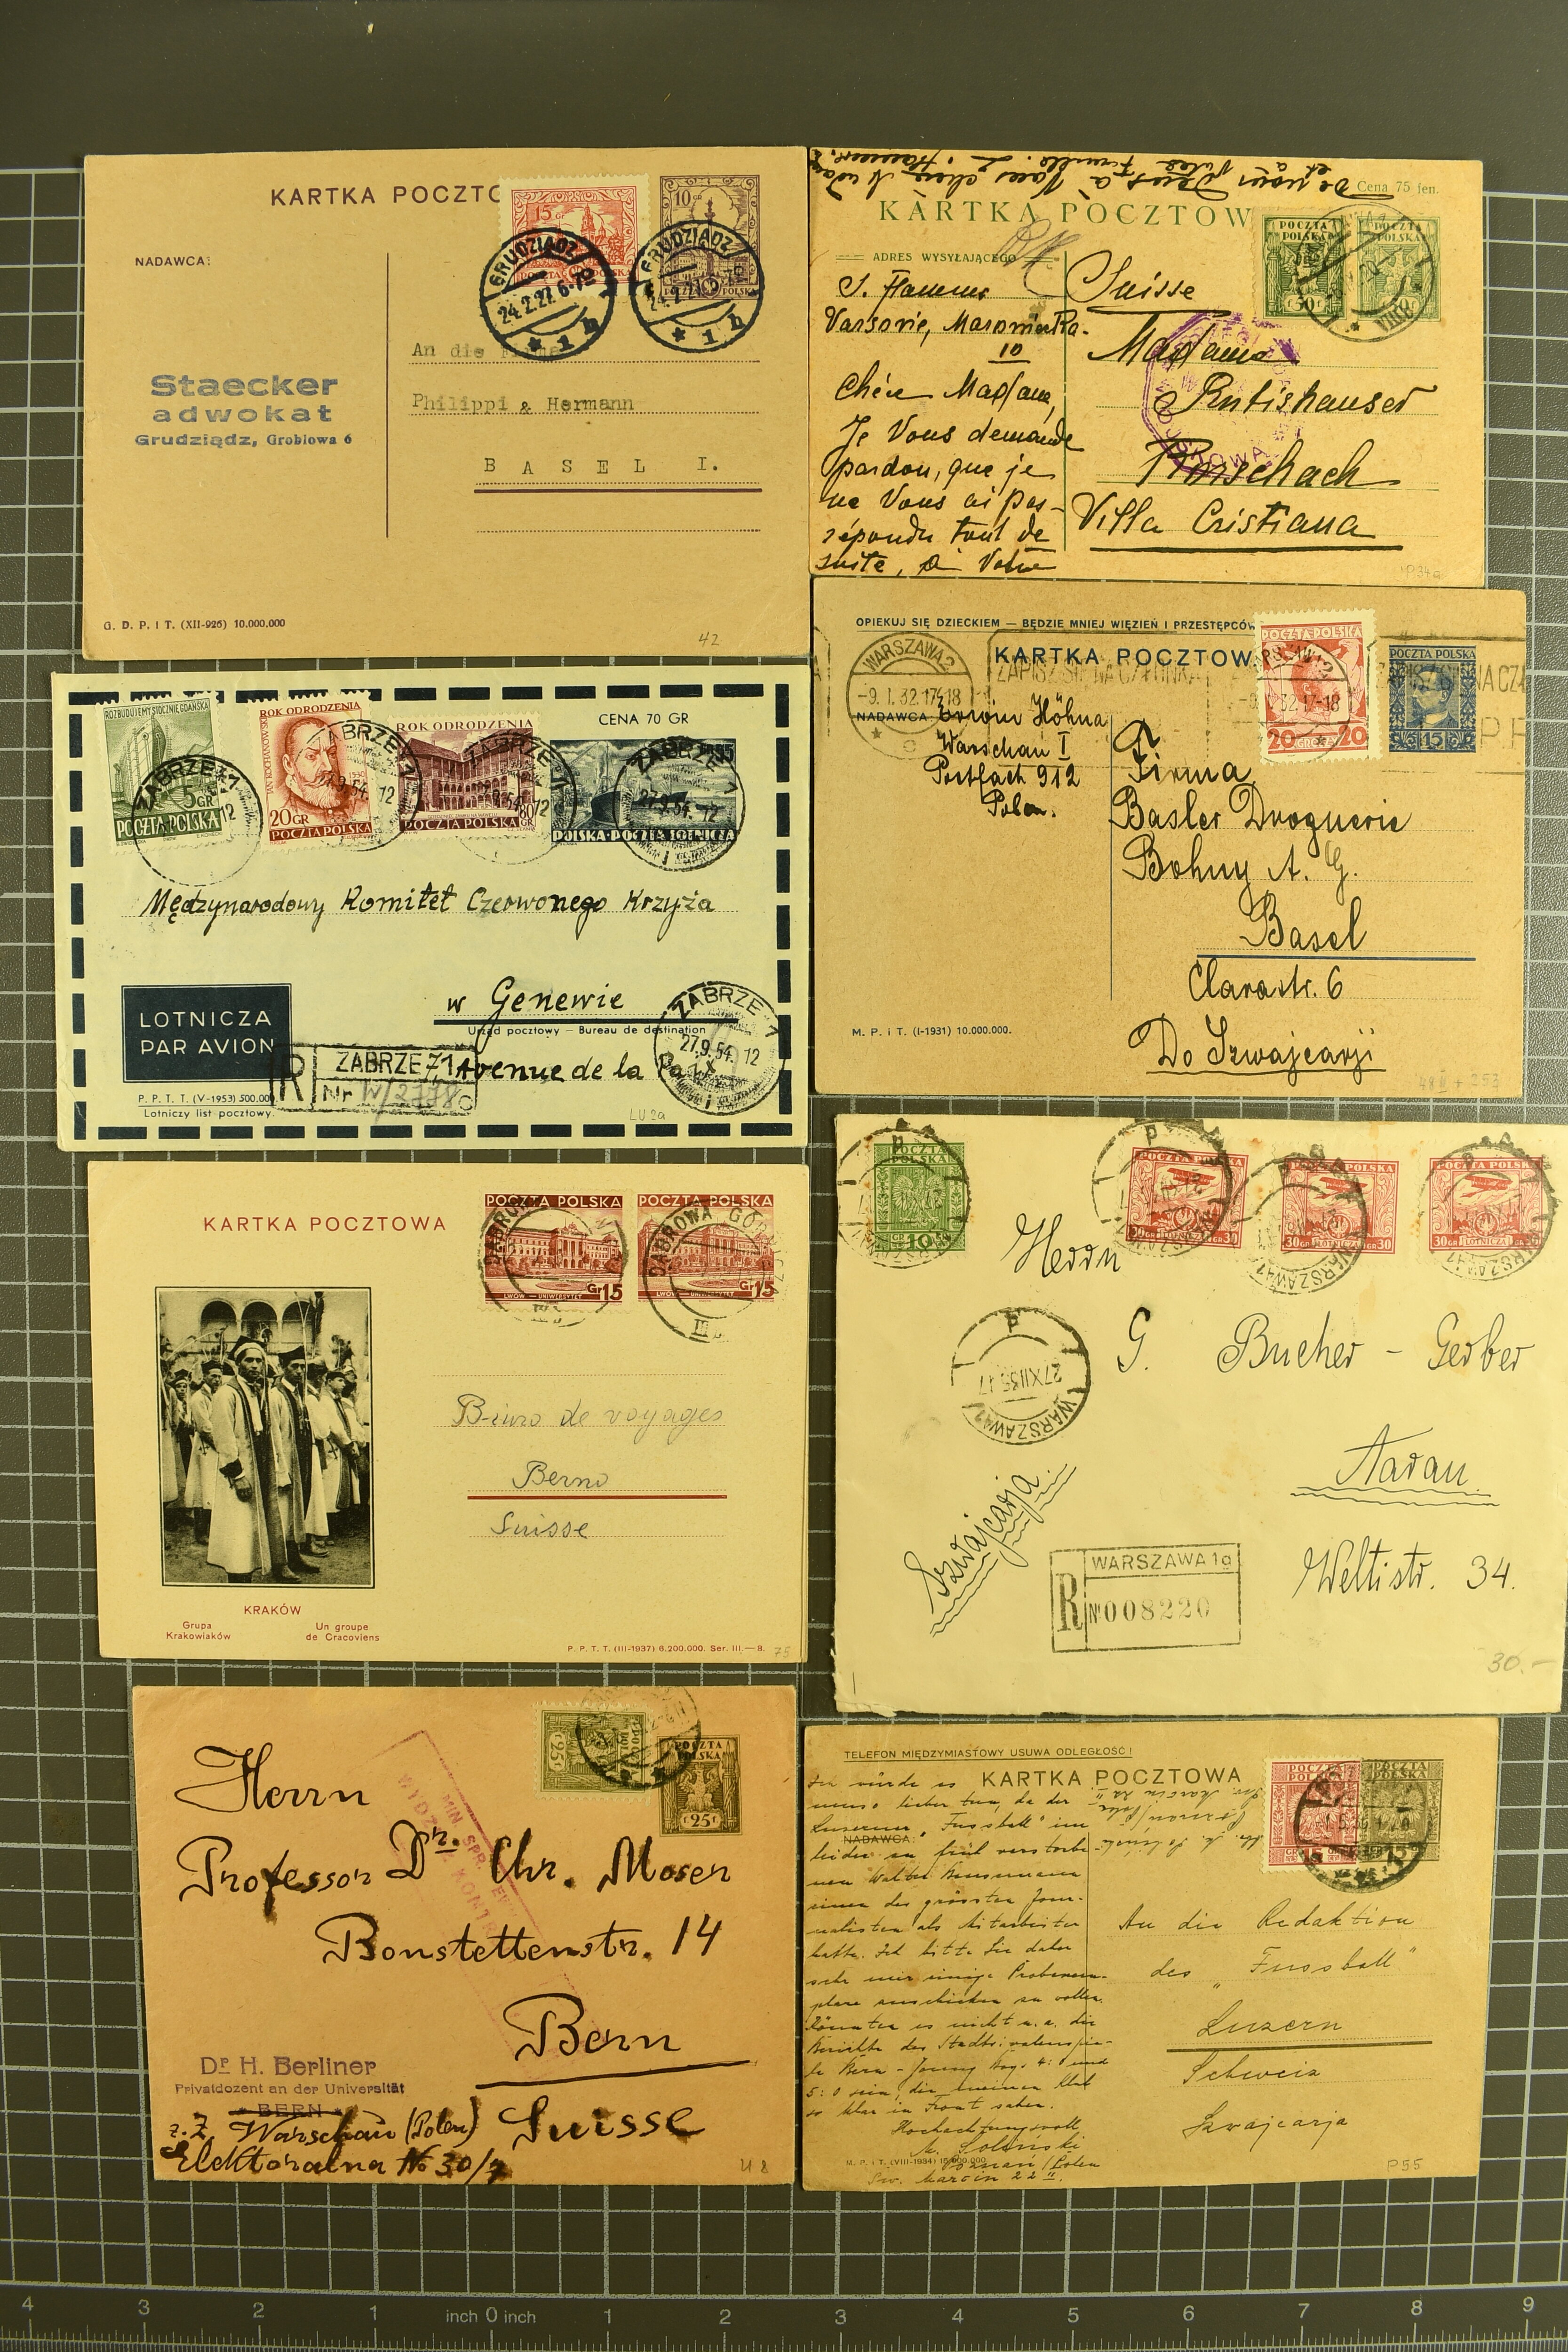 KARTKA POCZTO
15
10
POLSKA
GRUDZIĄDZ
24.2.27.6-7
* 1 h
GRUDZIĄDZ
* 1 h
NADAWCA:
An die Firma
Philippi & Hermann
BASEL I.
Staecker
adwokat
Grudziądz, Groblowa 6
G. D. P. i T. (XII-926) 10.000.000
42
Cena 75 fen.
KARTKA POCZTOW
POCZTA POLSKA
POCZTA POLSKA
ADRES WYSYŁAJĄCEGO
Varsovie,
10
Chère Madame,
Je Vous demande
pardon, que je
ne Vous ai pas
répondu tout de
suite, à Votre
Suisse
Madame
Rutishauser
Rorschach
Villa Cristiana
P34a
CENA 70 GR
ROZBUDUJEMY STOCZNIE GDAŃSKA
5GR
POCZTA POLSKA
ROK ODRODZENIA
JAN KOCHANOWSKI
20GR
POCZTA POLSKA
ROK ODRODZENIA
POCZTA POLSKA
60 GR
POLSKA·POCZTA LOTNICZA
ZABRZE 1
ZABRZE 1
27.9.54.12
ZABRZE 1
ZABRZE 1
27.9.54.12
Międzynarodowy Komitet Czerwonego Krzyża
w Genewie
Urząd pocztowy — Bureau de destination
7, Avenue de la Paix
LOTNICZA
PAR AVION
R
ZABRZE 1
Nr
ZABRZE 1
27.9.54. 12
P. P. T. T. (V-1953) 500.000.
Lotniczy list pocztowy.
LU 2a
OPIEKUJ SIĘ DZIECKIEM — BĘDZIE MNIEJ WIĘZIEŃ I PRZESTĘPCÓW
KARTKA POCZTOW
WARSZAWA 2
-9.I.32.17-18
ZAPISZ SIĘ NA CZŁONKA
NADAWCA
POCZTA POLSKA
20 GROSZY 20
POCZTA POLSKA
15
Erwin Höhna
Warschau I
Postfach 912
Polen.
Firma
Basler Droguerie
Bohny A. G.
Basel
Clarastr. 6
Do Szwajcarji
M. P. i T. (I-1931) 10.000.000.
KARTKA POCZTOWA
POCZTA POLSKA
LWÓW — UNIWERSYTET
Gr 15
POCZTA POLSKA
LWÓW — UNIWERSYTET
Gr 15
DĄBROWA GÓRNICZA
Biuro de voyages
Berno
Suisse
KRAKÓW
Grupa
Krakowiaków
Un groupe
de Cracoviens
P. P. T. T. (III-1937) 6.200.000. Ser. III.—8.
75
POCZTA POLSKA
GR 10
POCZTA POLSKA
30GR LOTNICZA GR30
POCZTA POLSKA
30GR LOTNICZA GR30
POCZTA POLSKA
30GR LOTNICZA GR30
Herrn
G. Bucher - Gerber
Aarau.
Weltistr. 34.
WARSZAWA 1
27XII35.17
Szwajcarja
R
WARSZAWA 1a
No 008220
30.-
POCZTA POLSKA
25f
POCZTA POLSKA
25f
Herrn
Professor Dr. Chr. Moser
Bonstettenstr. 14
Bern
Suisse
MIN. SPR.
Dr H. Berliner
Privatdozent an der Universität
BERN
z. Z. Warschau (Polen)
Elektoralna No 30/7
U 8
TELEFON MIĘDZYMIASTOWY USUWA ODLEGŁOŚĆ!
KARTKA POCZTOWA
NADAWCA:
Ich würde es
umso lieber tun, da der
Luzerner „Fussball" im
leider zu früh verstorbe-
nen Walter
einen der grössten Jour-
nalisten als Mitarbeiter
hatte. Ich bitte Sie daher
sehr mir einige Probeexem-
plare zuschicken zu wollen.
Könnten es nicht u. a. die
Berichte des
Bern - Young Boys 4:1 und
5:0 sein, die meinen Klub
so klar in Front sahen.
Hochachtungsvoll
M. Soliński
Poznań/Polen
Św. Marcin 22 II.
M. P. i T. (VIII-1934) 15.000.000.
An die Redaktion
des „Fussball"
Luzern
Schweiz
Szwajcarja
P55
4 3 2 1 inch 0 inch 1 2 3 4 5 6 7 8 9